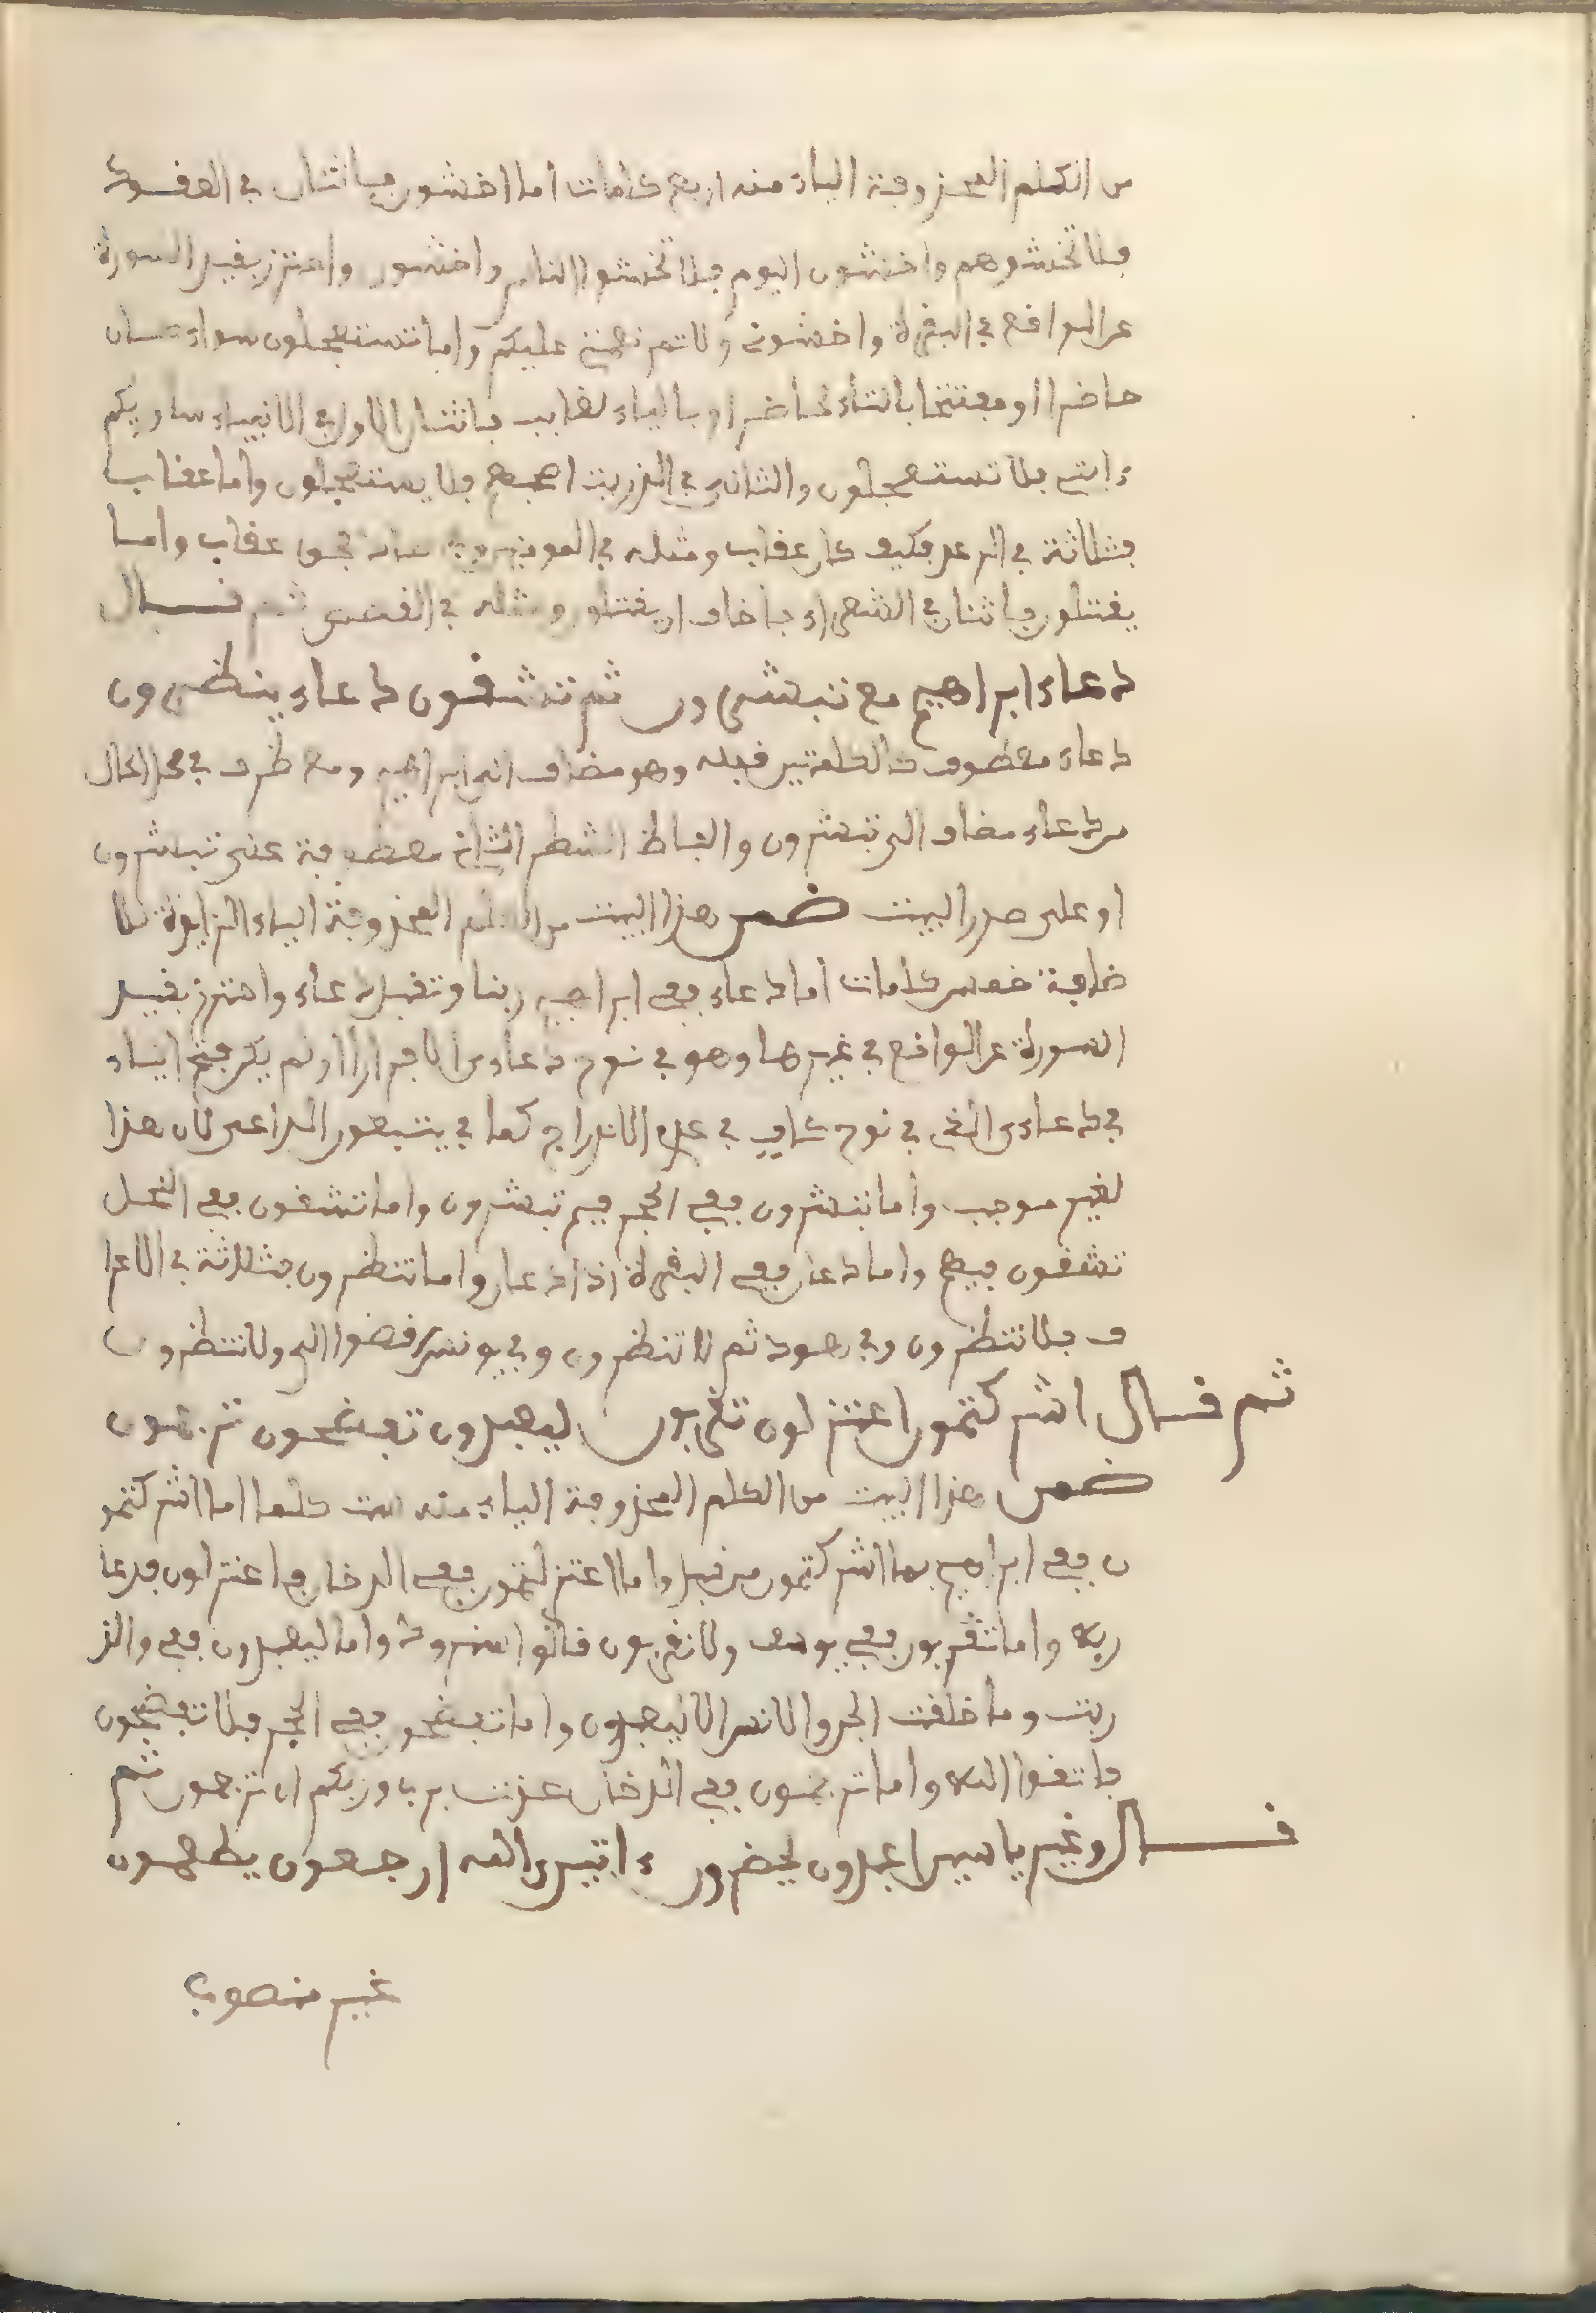 من الكلم المحذوفة الياء منه اربع كلمات اما اخشون فاثنان في العقود
فلا تخشوهم واخشون اليوم فلا تخشوا الناس واخشون واحترز بقيد السورة
عن الواقع في البقرة واخشوني ولاتم نعمتي عليكم واما تستعجلون سواء كان
حاضرا او مفتتحا بالتاء لحاضر او بالياء لغايب فاثنان الاول في الانبياء ساوريكم
ءايتي فلا تستعجلون والثاني في الذريت اصحبهم فلا يستعجلون واما عقاب
فثلاثة في الرعد فكيف كان عقاب ومثله في المومن وفي فحق عقاب واما
يقتلون فاثنان في الشعراء فاخاف ان يقتلون ومثله في القصص ثم قال
دعاء ابراهيم مع تبشرون ثم تشقون دعان ينظرون
دعاء معطوف كالكلمتين قبله وهو مضاف الى ابراهيم ومع ظرف في محل الحال
من دعاء مضاف الى تبشرون والفاظ الشطر الثاني معطوفة على تبشرون
او على صدر البيت ضمن هذا البيت من الكلم المحذوفة الياء الزايدة للا
ضافة خمس كلمات اما دعاء ففي ابراهيم ربنا وتقبل دعاء واحترز بقيد
السورة عن الواقع في غيرها وهو في نوح دعاءي الا فرارا ولم يكن فتح الياء
في دعاءي الذي في نوح كاف في عدم الاندراج كما في يتبعون الداعي لان هذا
لغير موجب واما تبشرون ففي الحجر فبم تبشرون واما تشقون ففي النحل
تشقون فيهم واما دعان ففي البقرة اذا دعان واما تنظرون فثلاثة في الاعرا
ف فلا تنظرون وفي هود ثم لا تنظرون وفي يونس اقضوا الي ولا تنظرون
ثم قال اشركتمون اعتزلون تقربون ليعبدون تفضحون ترجمون
ضمن هذا البيت من الكلم المحذوفة الياء منه ست كلما اما اشركتمو
ن ففي ابراهيم بما اشركتمون من قبل واما اعتزلتمون ففي الدخان فاعتزلون فدعا
ربه واما تقربون ففي يوسف ولا تقربون قالوا سنرود واما ليعبدون ففي والذ
ريت وما خلقت الجن والانس الا ليعبدون واما تفضحون ففي الحجر فلا تفضحون
فاتقوا الله واما ترجمون ففي الدخان عذت بربي وربكم ان ترجمون ثم
قال وغير ياسين اعبدون يحضرون ءاتين الله ارجعون يطعمون
غير منصوب